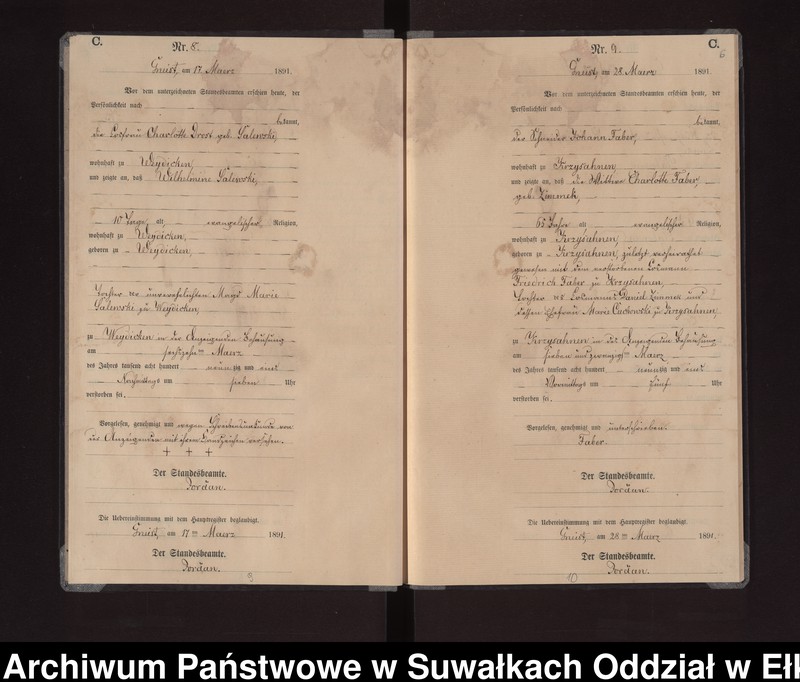 C.
Nr. 8.
Gneist, am 17. Maerz 1891.
Vor dem unterzeichneten Standesbeamten erschien heute, der
Persönlichkeit nach
bekannt,
die Losfrau Charlotte Drost geb. Salewski,
wohnhaft zu Weydicken,
und zeigte an, daß Wilhelmine Salewski,
10 Tage, alt evangelischer Religion,
wohnhaft zu Weydicken,
geboren zu Weydicken,
Tochter der unverehelichten Magd Marie
Salewski zu Weydicken,
zu Weydicken in der Anzeigenden Behausung
am sechszehnten Maerz
des Jahres tausend acht hundert neunzig und eins
Nachmittags um sieben Uhr
verstorben sei.
Vorgelesen, genehmigt und wegen Schreibensunkunde von
der Anzeigenden mit ihrem Handzeichen versehen.
+ + +
Der Standesbeamte.
Jordan.
Die Uebereinstimmung mit dem Hauptregister beglaubigt.
Gneist, am 17ten Maerz 1891.
Der Standesbeamte.
Jordan.
9
C.
6
Nr. 9.
Gneist, am 28. Maerz 1891.
Vor dem unterzeichneten Standesbeamten erschien heute, der
Persönlichkeit nach
bekannt,
der Schneider Johann Faber,
wohnhaft zu Krzysahnen,
und zeigte an, daß die Wittwe Charlotte Faber,
geb. Zimmek,
65 Jahre alt evangelischer Religion,
wohnhaft zu Krzysahnen,
geboren zu Krzysahnen, zuletzt verheirathet
gewesen mit dem verstorbenen Losmann
Friedrich Faber zu Krzysahnen,
Tochter des Losmanns Daniel Zimmek und
dessen Ehefrau Marie Cuchowski zu Krzysahnen,
zu Krzysahnen in des Anzeigenden Behausung
am sieben und zwanzigsten Maerz
des Jahres tausend acht hundert neunzig und eins
Vormittags um fünf Uhr
verstorben sei.
Vorgelesen, genehmigt und unterschrieben.
Faber.
Der Standesbeamte.
Jordan.
Die Uebereinstimmung mit dem Hauptregister beglaubigt.
Gneist, am 28ten Maerz 1891.
Der Standesbeamte.
Jordan.
10
Archiwum Państwowe w Suwałkach Oddział w Ełk